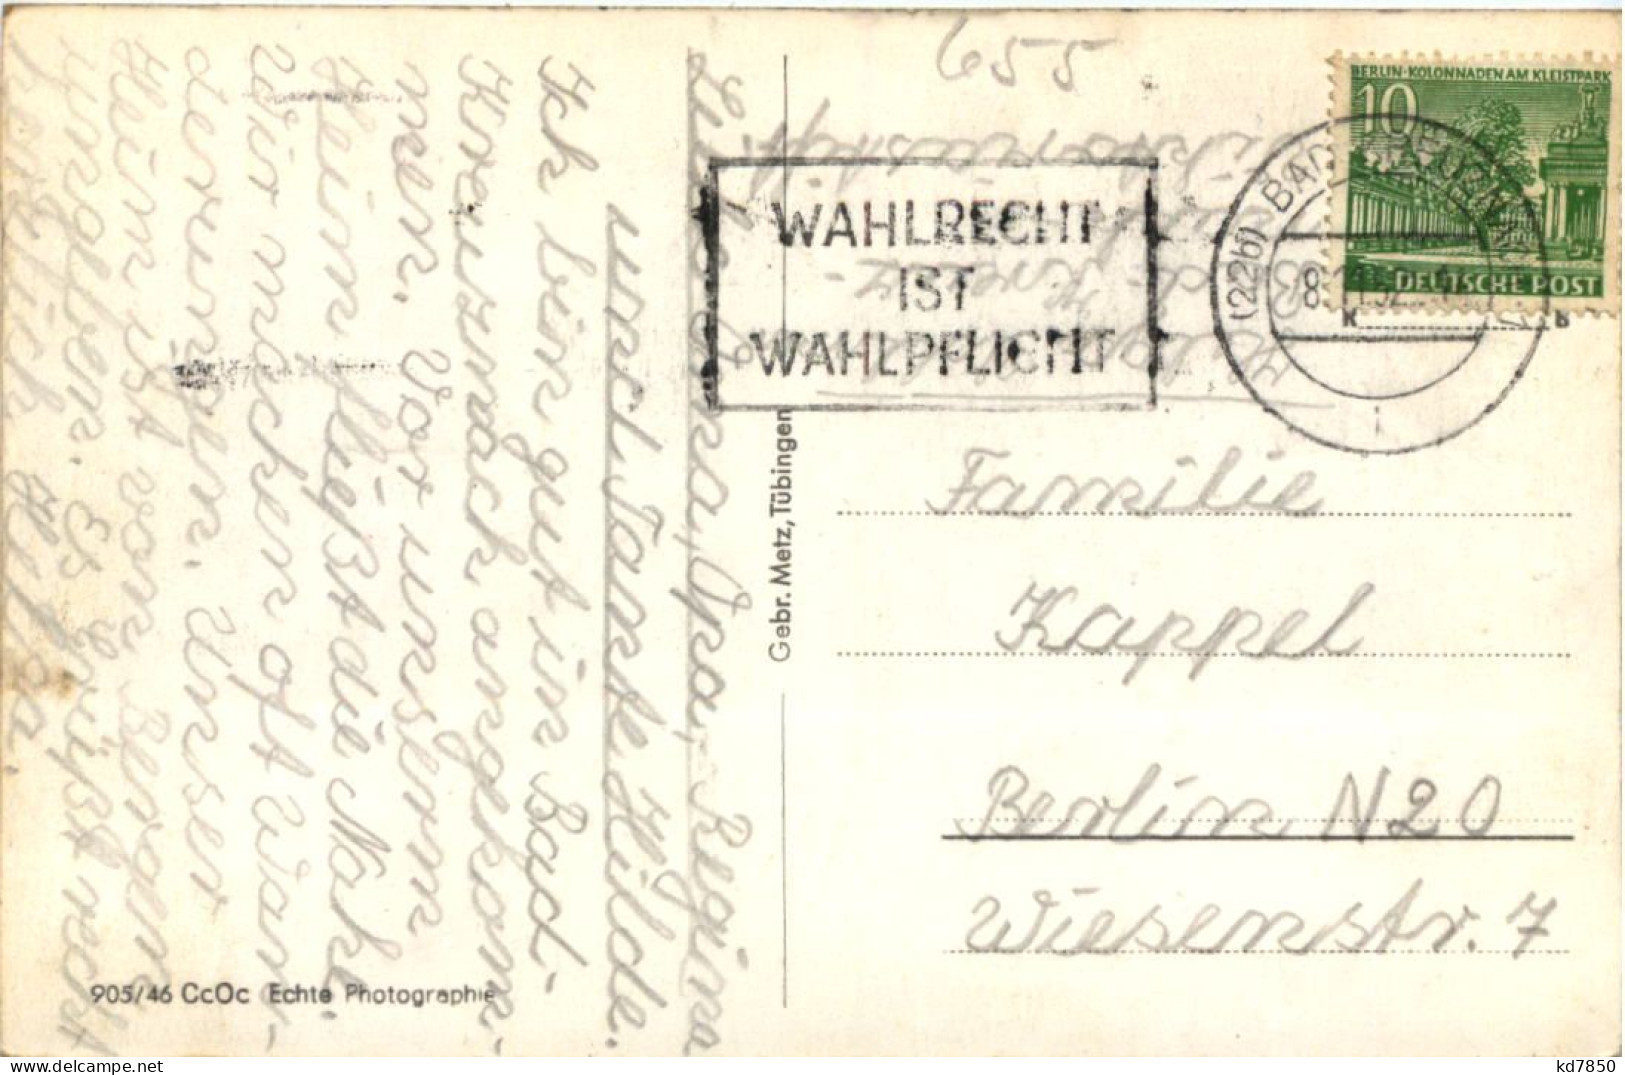 655
BERLIN-KOLONNADEN AM KLEISTPARK
10
DEUTSCHE POST
(22b) BAD KREUZNACH
WAHLRECHT
IST
WAHLPFLICHT
Familie
Kappel
Berlin N20
Wiesenstr. 7
Gebr. Metz, Tübingen
Liebe Oma, Opa, Regina
und Tante Hilde.
Ich bin gut in Bad-
Kreuznach angekom-
men. Vor unserm
Heim fließt die Nahe.
Wir machen oft Wan-
derungen. Unser
Heim ist von Bergen
umgeben. Es grüßt recht
herzlich
905/46 CcOc Echte Photographie
kd7850